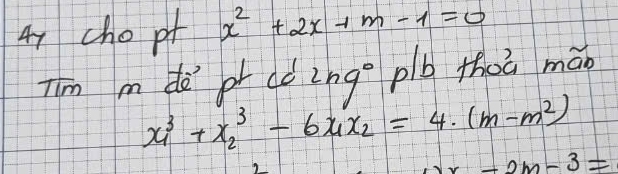 4, cho pt x² + 2x + m - 1 = 0
Tìm m để pt có 2 ngº p/b thoả mãn
x₁³ + x₂³ - 6x₁x₂ = 4. (m - m²)
- 2m - 3 =